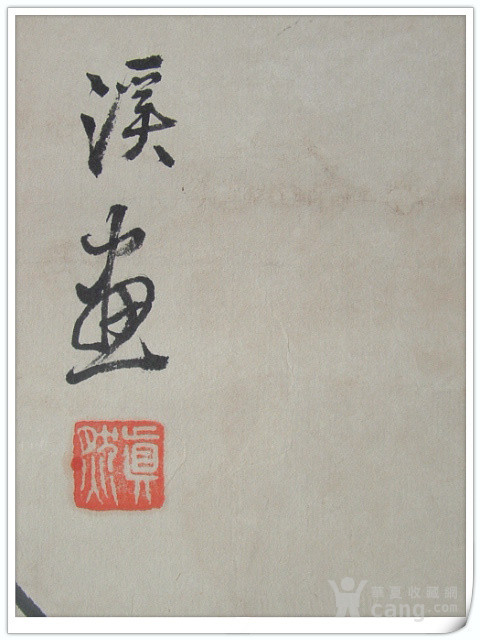 溪
畫
眞
華夏收藏網
cang.com